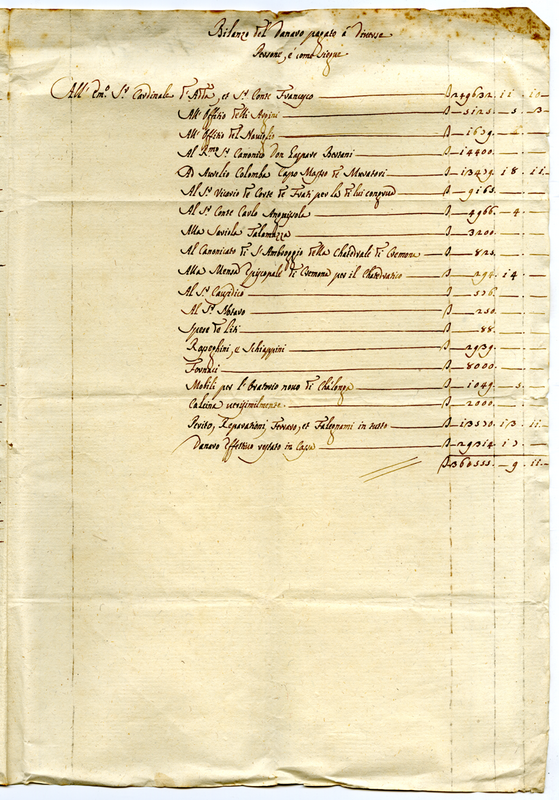 Bilanzo del Danaro pagato à diverse
Persone, è come segue
All' Em.º S.r Cardinale d'Adda, et S.r Conte Francesco — 249632. 11. 10
All' Offitio delli Argini — 3125. 5. 3
All' Offitio del Naviglio — 1639. 6.
Al R.mo S.r Canonico Don Gaspare Bessani — 14400.
Ad Aurelio Colomba Capo Mastro de Muratori — 13479. 18. 11.
Al S.r Vicario de Corte de Frati per le de lui congrue — 9165.
Al S.r Conte Carlo Anguissola — 4966. 4.
Alla Saviola — 3200.
Al Canonicato di S. Ambroggio della Chatedrale di Cremona — 825.
Alla Mensa Episcopale di Cremona per il Chatedratico — 294. 14
Al S.r Causidico — 576.
Al S.r Notaro — 250.
Spese de liti — 88.
Rossoghini, e Schiappini — 2939.
Fornaci — 8000.
Mobili per l'Oratorio novo di — 1049. 5.
Calcina verisimilmente — 2000.
Perito, Reparationi, Ferraro, et Falegnami in tutto — 13570. 13. 11.
Danaro Effettivo restato in Cassa — 29314. 13.
360555. 9. 11.